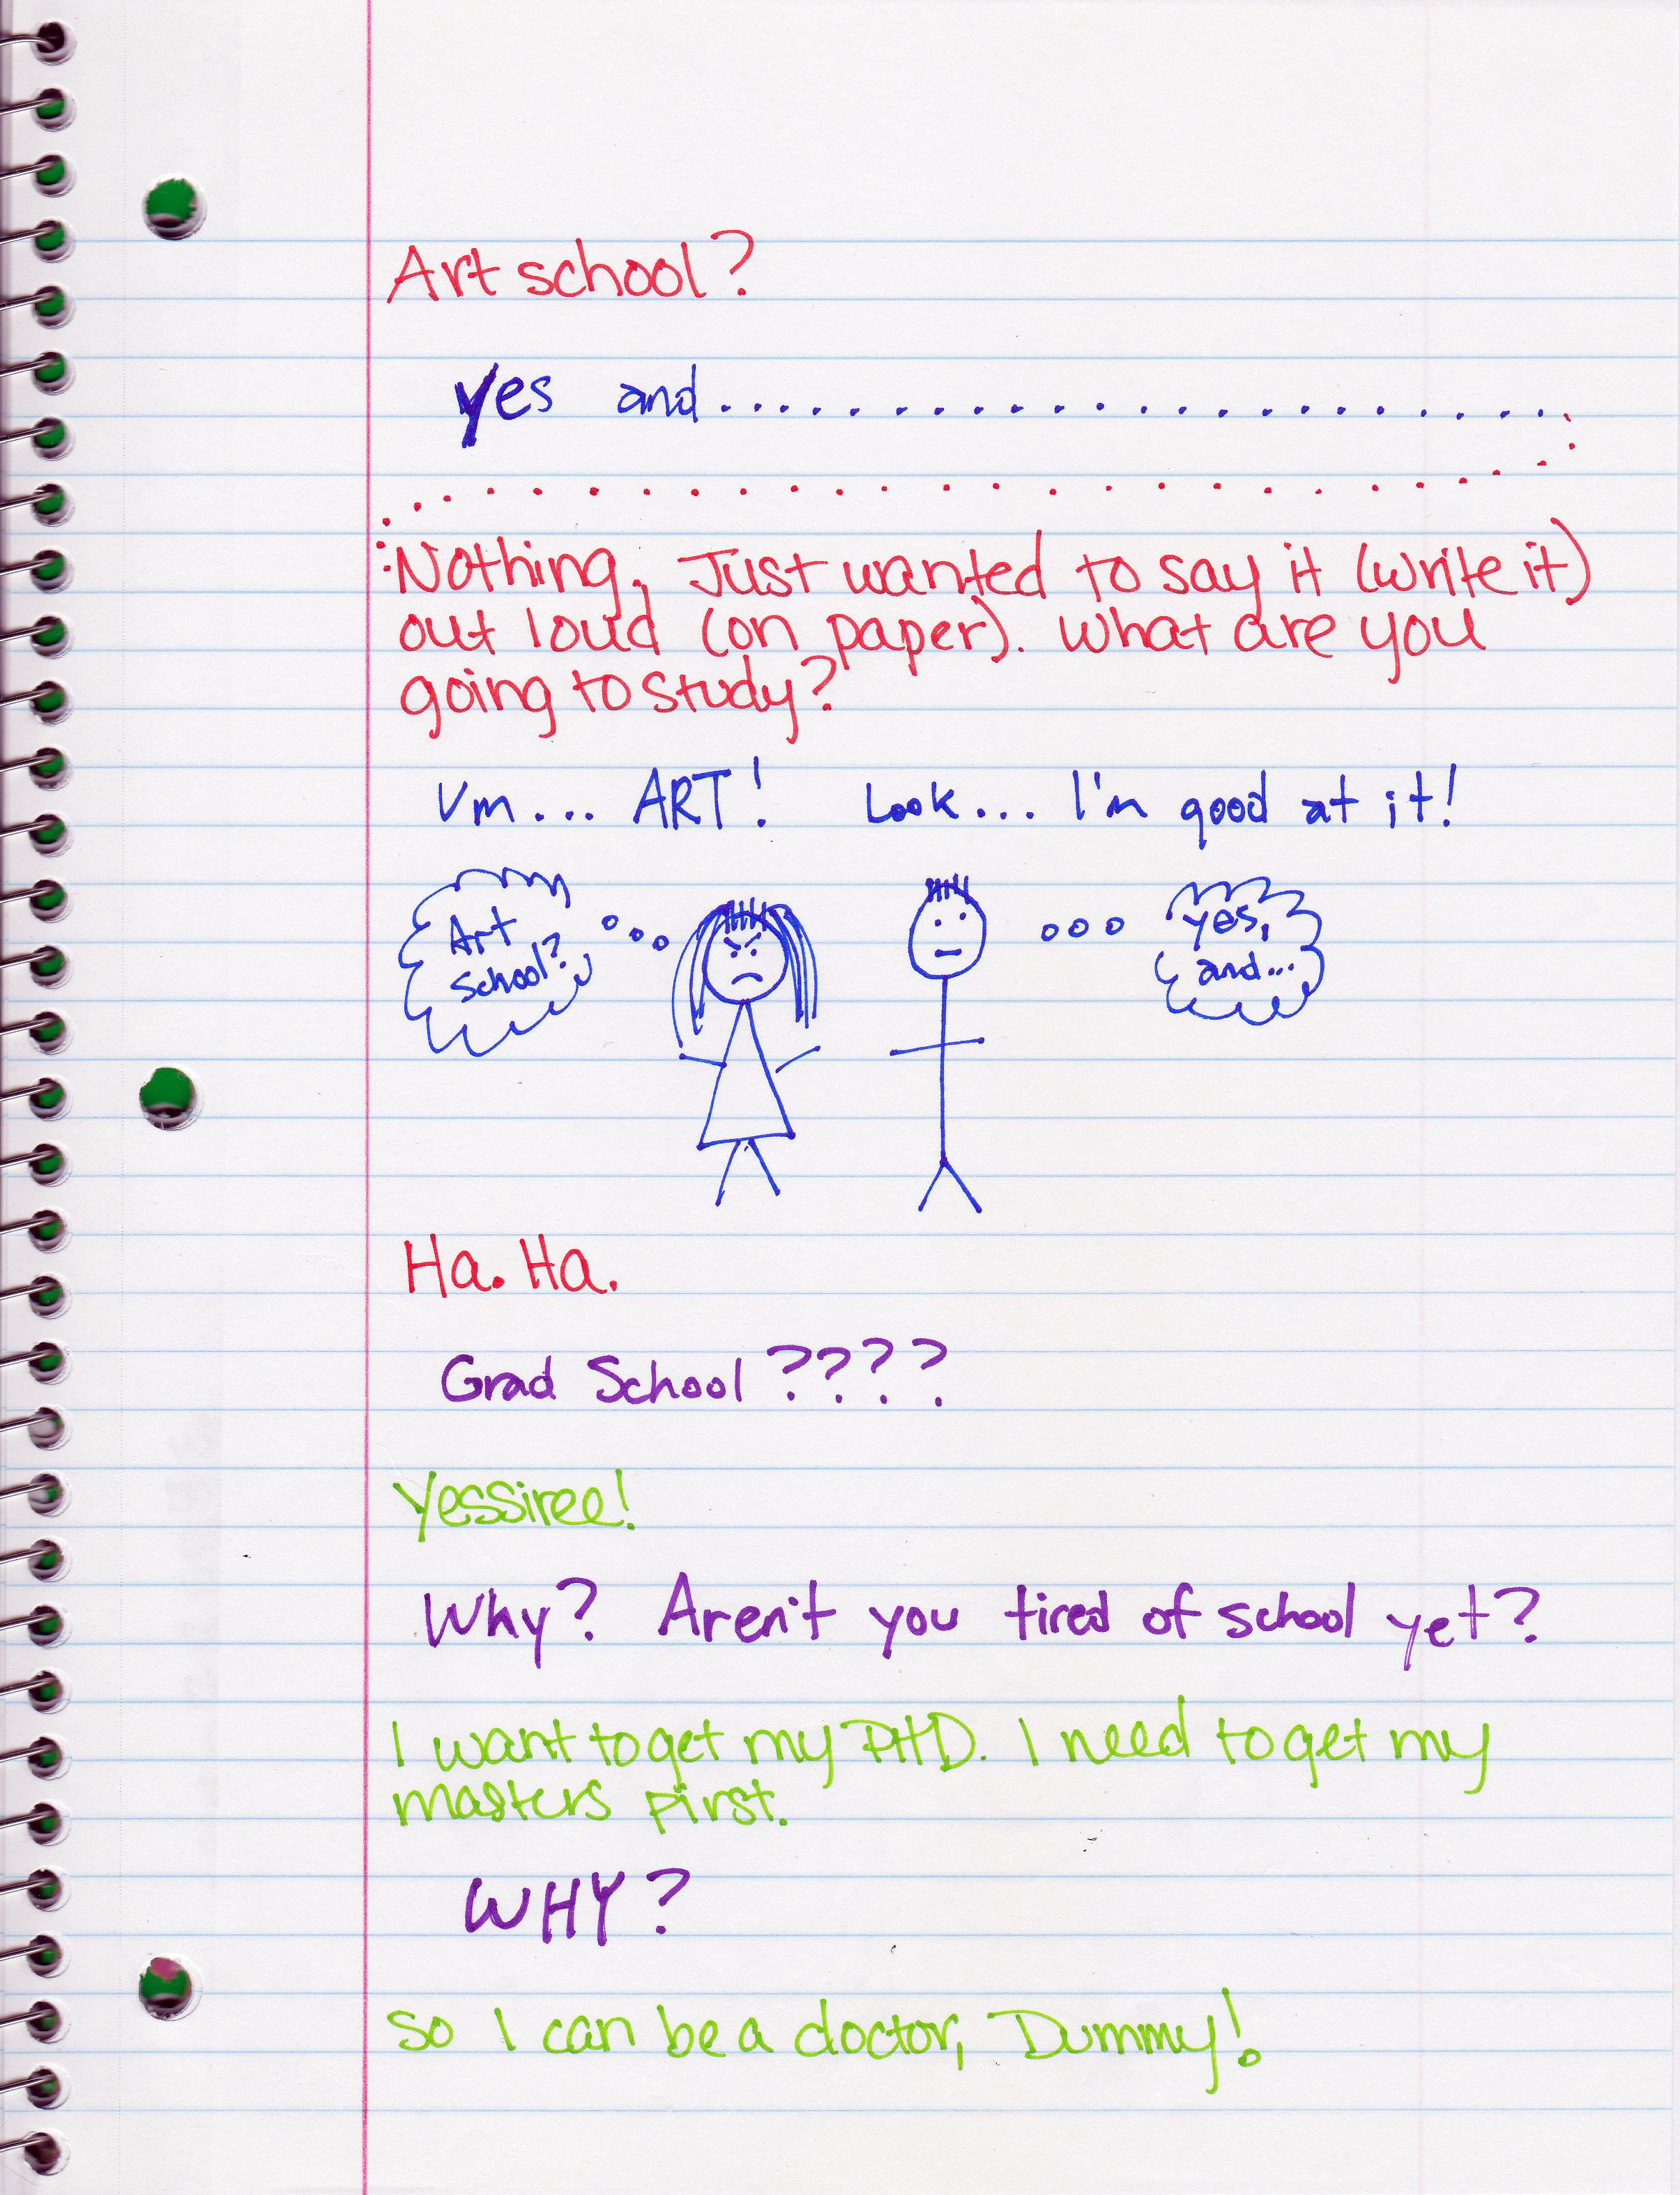 Art school?
yes and..............................
.........................
:Nothing, Just wanted to say it (write it)
out loud (on paper). What are you
going to study?
Um... ART! Look... I'm good at it!
Art
School?
yes,
and...
Ha. Ha.
Grad School ????
Yessiree!
Why? Aren't you tired of school yet?
I want to get my PHD. I need to get my
masters first.
WHY?
so I can be a doctor, Dummy!